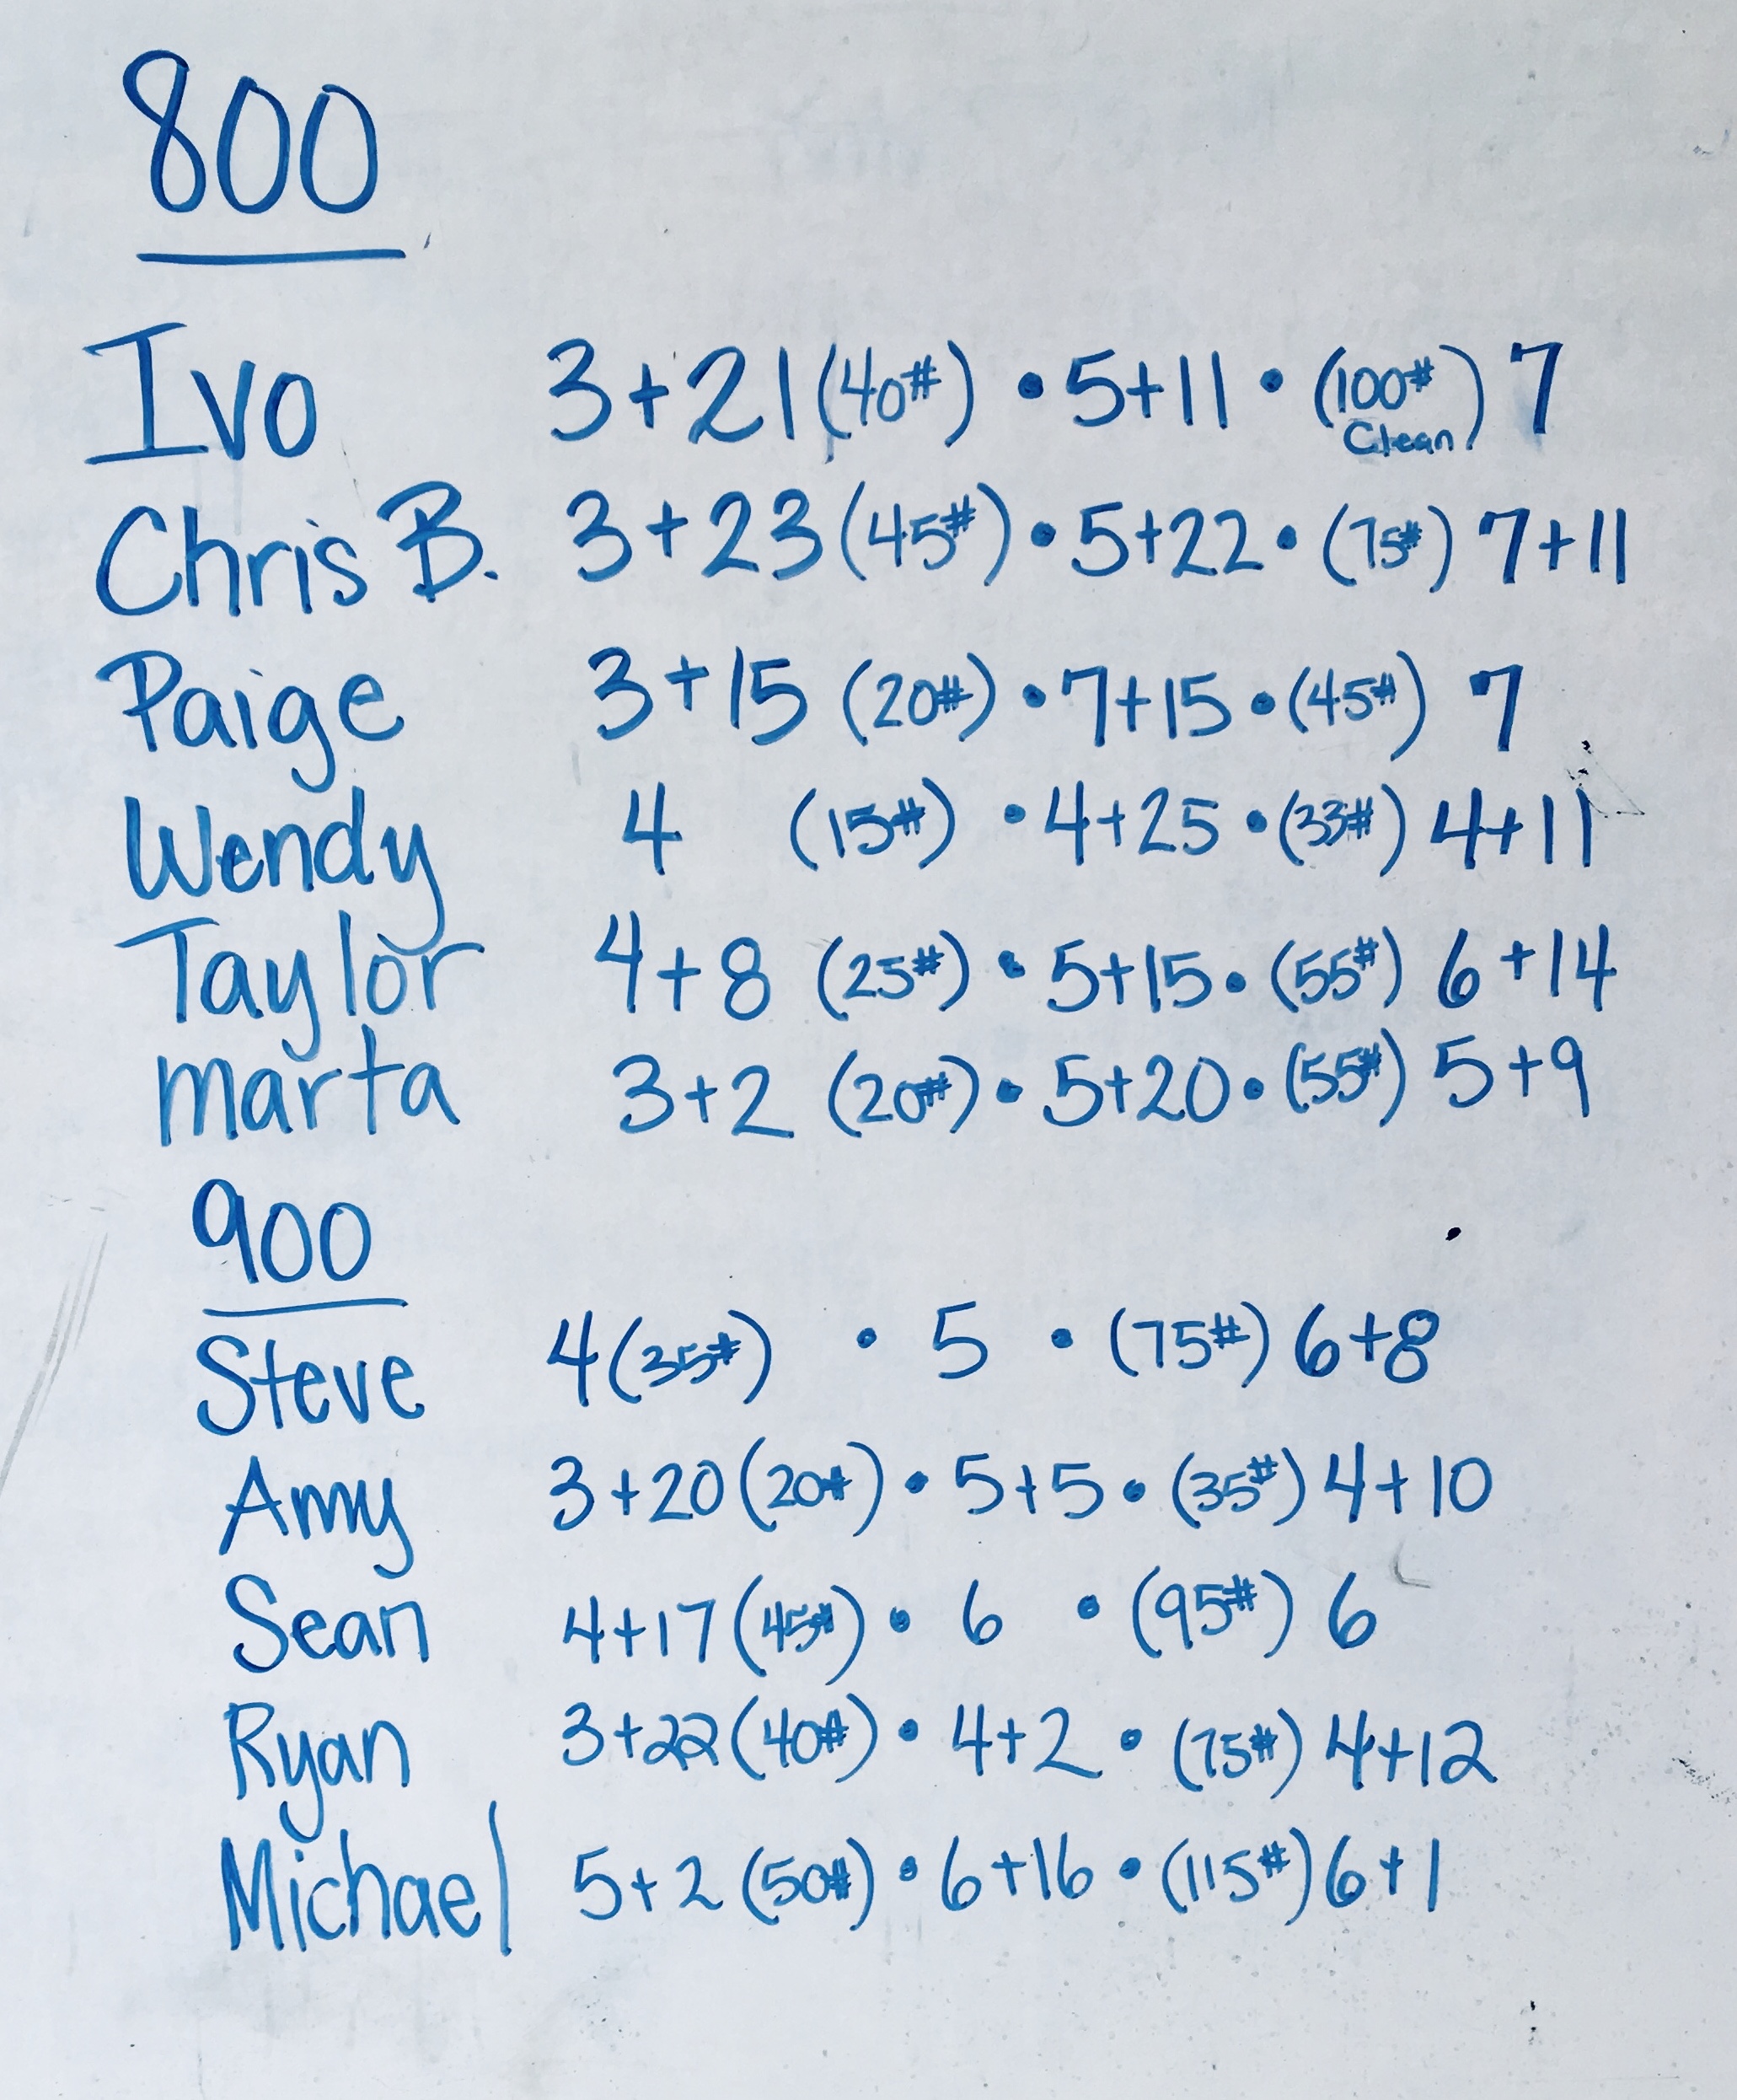 800
Ivo 3+21 (40#) • 5+11 • (100# Clean) 7
Chris B. 3+23 (45#) • 5+22 • (75#) 7+11
Paige 3+15 (20#) • 7+15 • (45#) 7
Wendy 4 (15#) • 4+25 • (33#) 4+11
Taylor 4+8 (25#) • 5+15 • (55#) 6+14
marta 3+2 (20#) • 5+20 • (55#) 5+9
900
Steve 4 (35#) • 5 • (75#) 6+8
Amy 3+20 (20#) • 5+5 • (35#) 4+10
Sean 4+17 (45#) • 6 • (95#) 6
Ryan 3+22 (40#) • 4+2 • (75#) 4+12
Michael 5+2 (50#) • 6+16 • (115#) 6+1